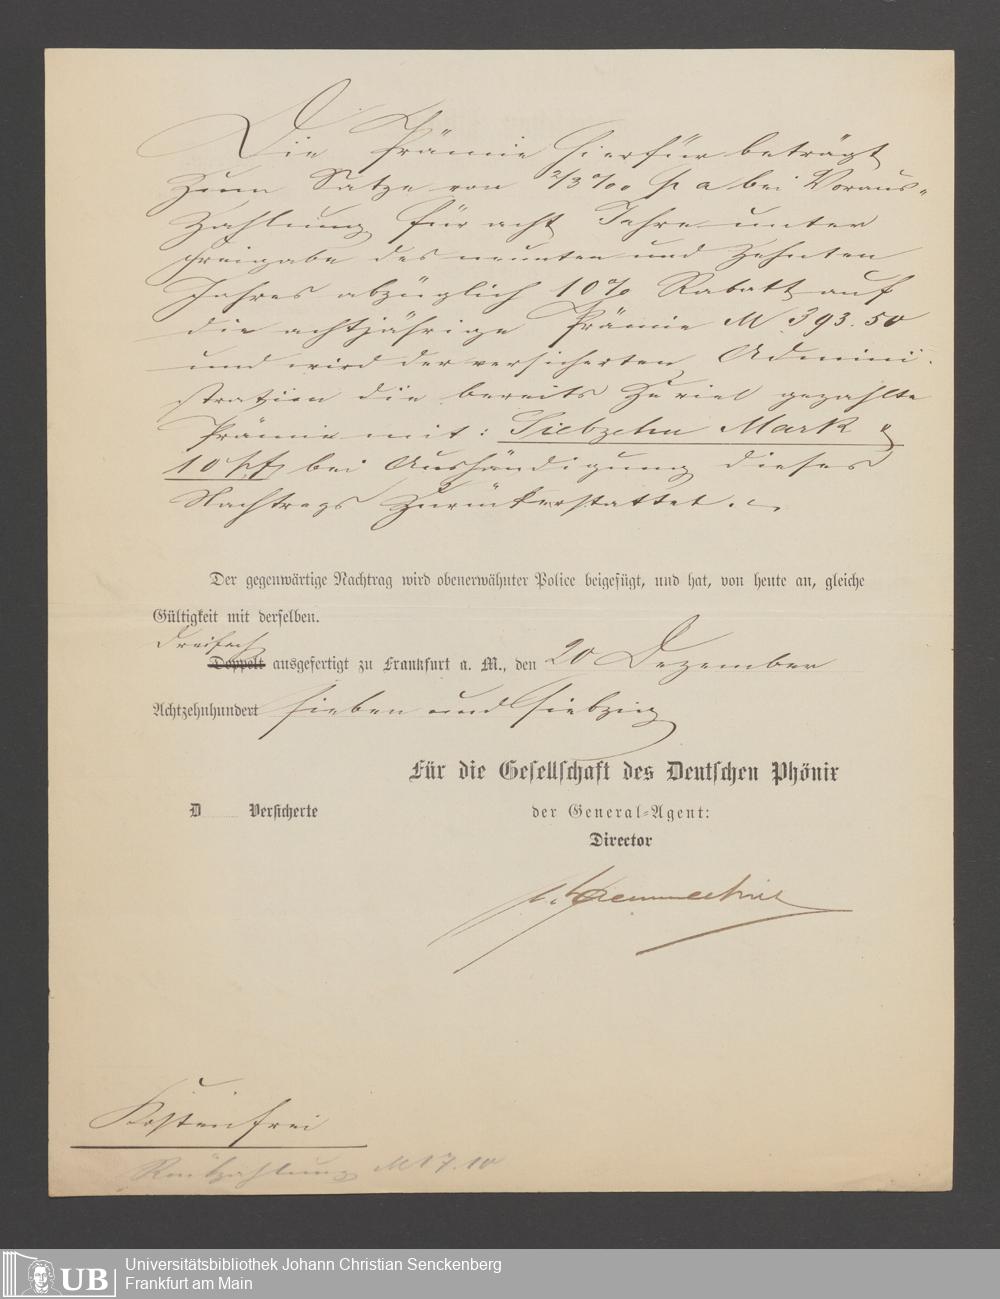 Die Prämie hierfür beträgt
zum Satze von 2/3 ‰ p a bei Voraus-
zahlung für acht Jahre unter
Freigabe des neunten und zehnten
Jahres abzüglich 10% Rabatt auf
die achtjährige Prämie M 393.50
und wird der versicherten Admini-
stration die bereits zuviel gezahlte
Prämie mit: Siebzehn Mark &
10 Pf bei Aushändigung dieses
Nachtrags zurückerstattet.
Der gegenwärtige Nachtrag wird obenerwähnter Police beigefügt, und hat, von heute an, gleiche
Gültigkeit mit derselben.
Dreifach
Doppelt ausgefertigt zu Frankfurt a. M., den 20 Dezember
Achtzehnhundert sieben und siebzig
Für die Gesellschaft des Deutschen Phönix
der General-Agent:
Director
D Versicherte
Kostenfrei
Rückzahlung M 17.10
UB
Universitätsbibliothek Johann Christian Senckenberg
Frankfurt am Main